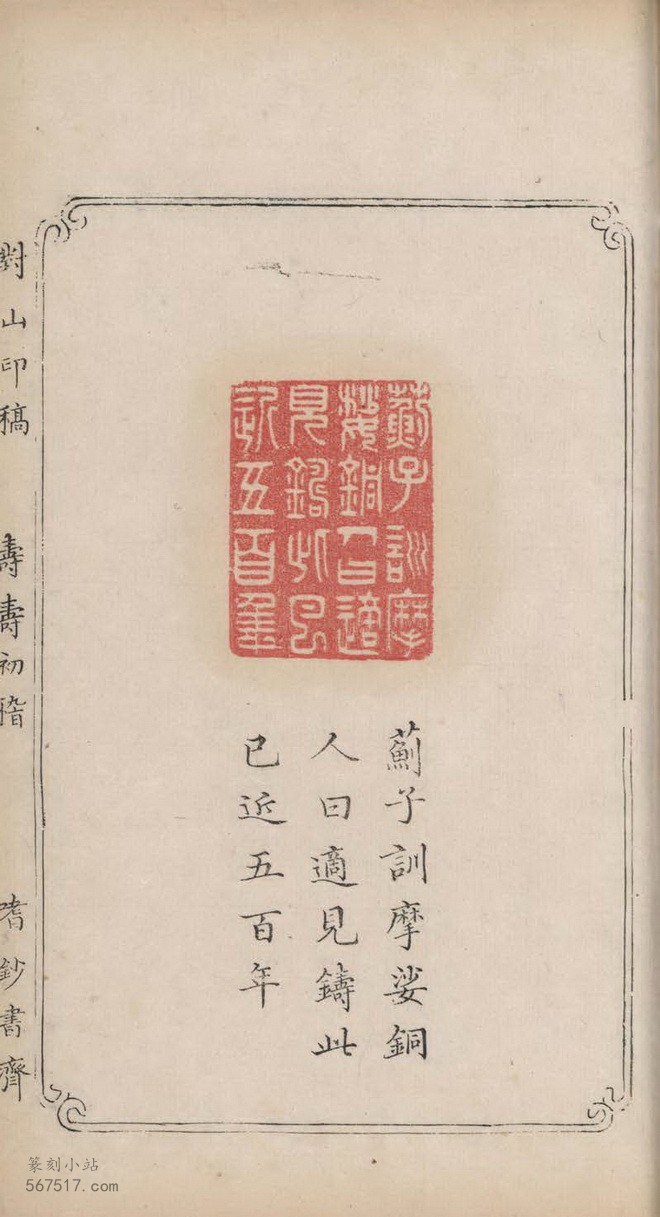 薊子訓摩
娑銅人曰適
見鑄此已
近五百年
薊子訓摩娑銅
人曰適見鑄此
已近五百年
對山印稿
壽壽初
嗜鈔書齊
篆刻小站
567517.com